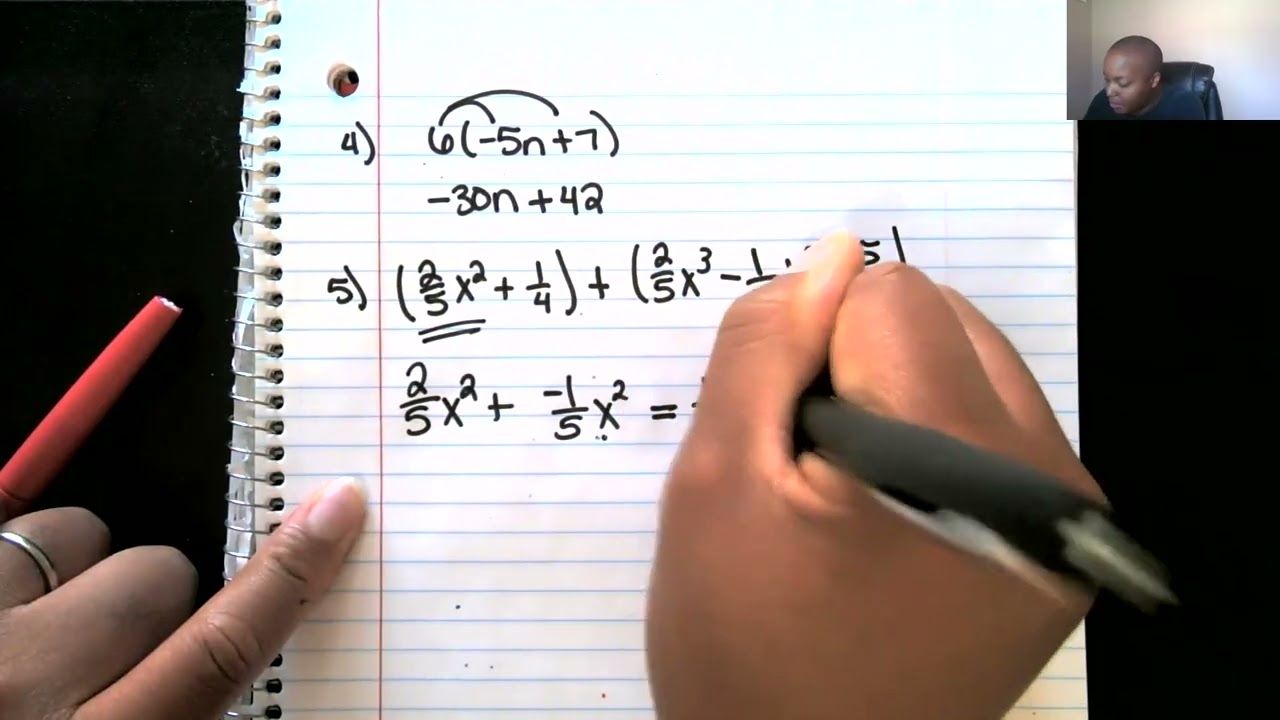 4) 6(-5n+7)
-30n+42
5) (2/5x²+1/4)+(2/5x³-1
2/5x²+ -1/5x² =